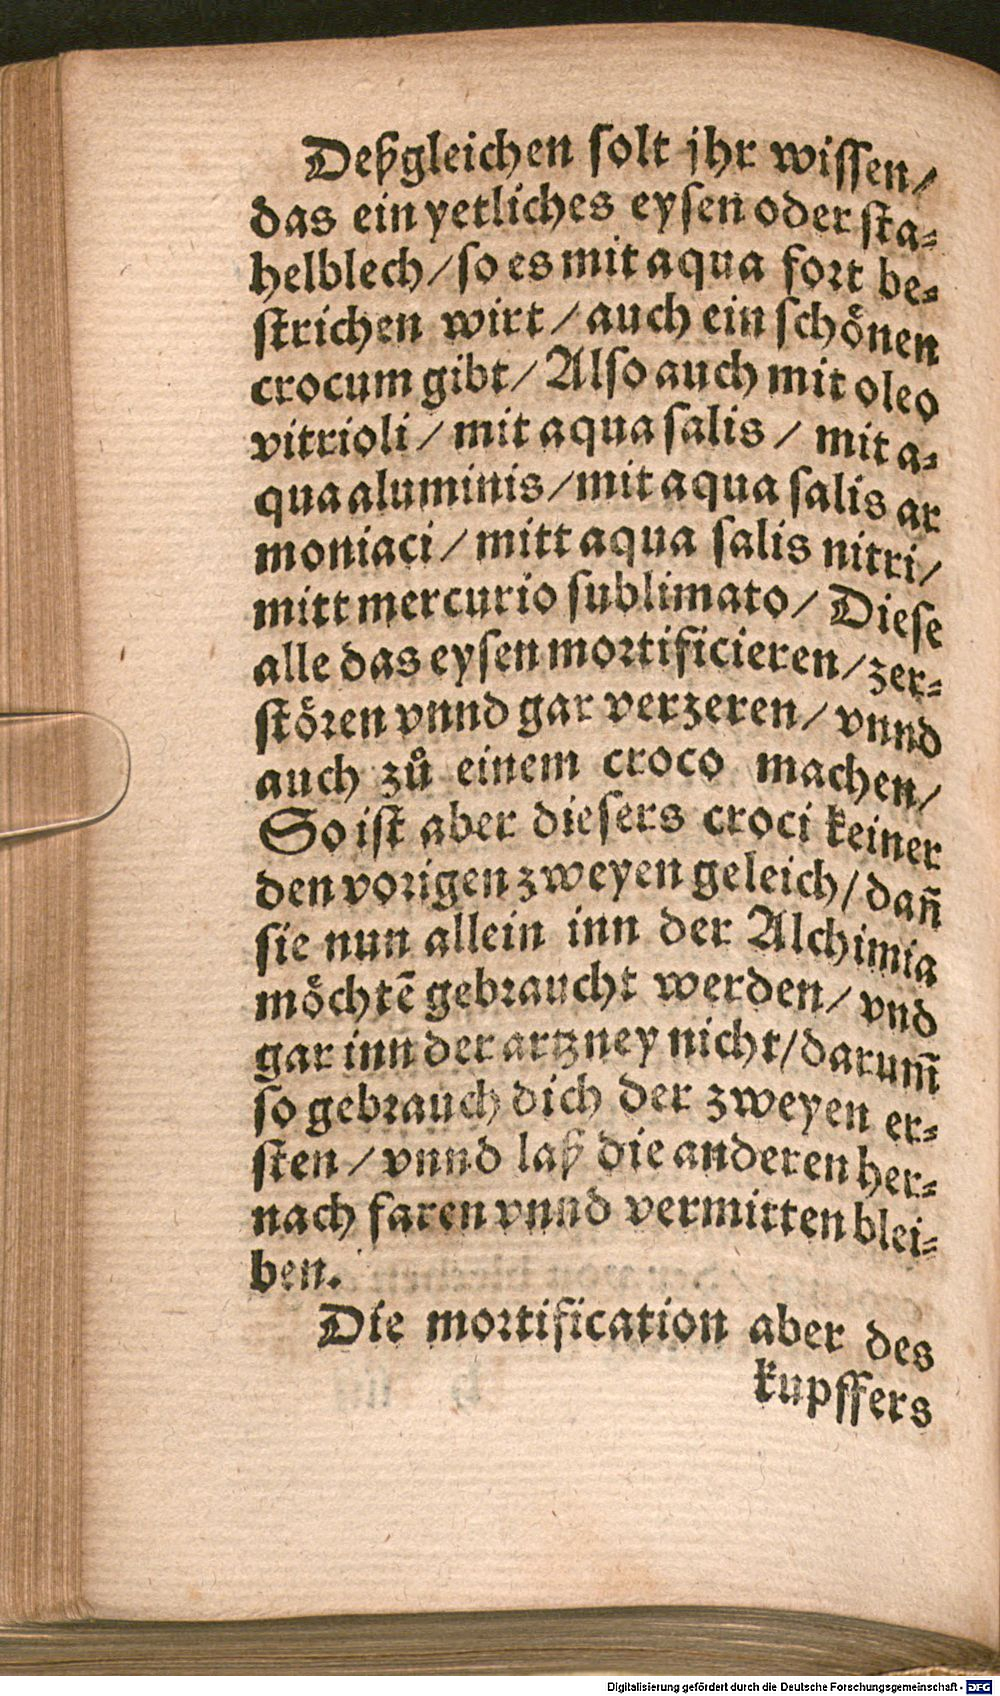 Deßgleichen solt jhr wissen/
das ein yetliches eysen oder sta⸗
helblech/so es mit aqua fort be⸗
strichen wirt/auch ein schönen
crocum gibt/Also auch mit oleo
vitrioli/mit aqua salis/mit a⸗
qua aluminis/mit aqua salis ar
moniaci/mitt aqua salis nitri/
mitt mercurio sublimato/Diese
alle das eysen mortificieren/zer⸗
stören vnnd gar verzeren/vnnd
auch zů einem croco machen/
So ist aber diesers croci keiner
den vorigen zweyen geleich/dañ
sie nun allein inn der Alchimia
möchtē gebraucht werden/vnd
gar inn der artzney nicht/darum̄
so gebrauch dich der zweyen er⸗
sten/vnnd laß die anderen her⸗
nach faren vnnd vermitten blei⸗
ben.
Die mortification aber des
kupffers
Digitalisierung gefördert durch die Deutsche Forschungsgemeinschaft - DFG